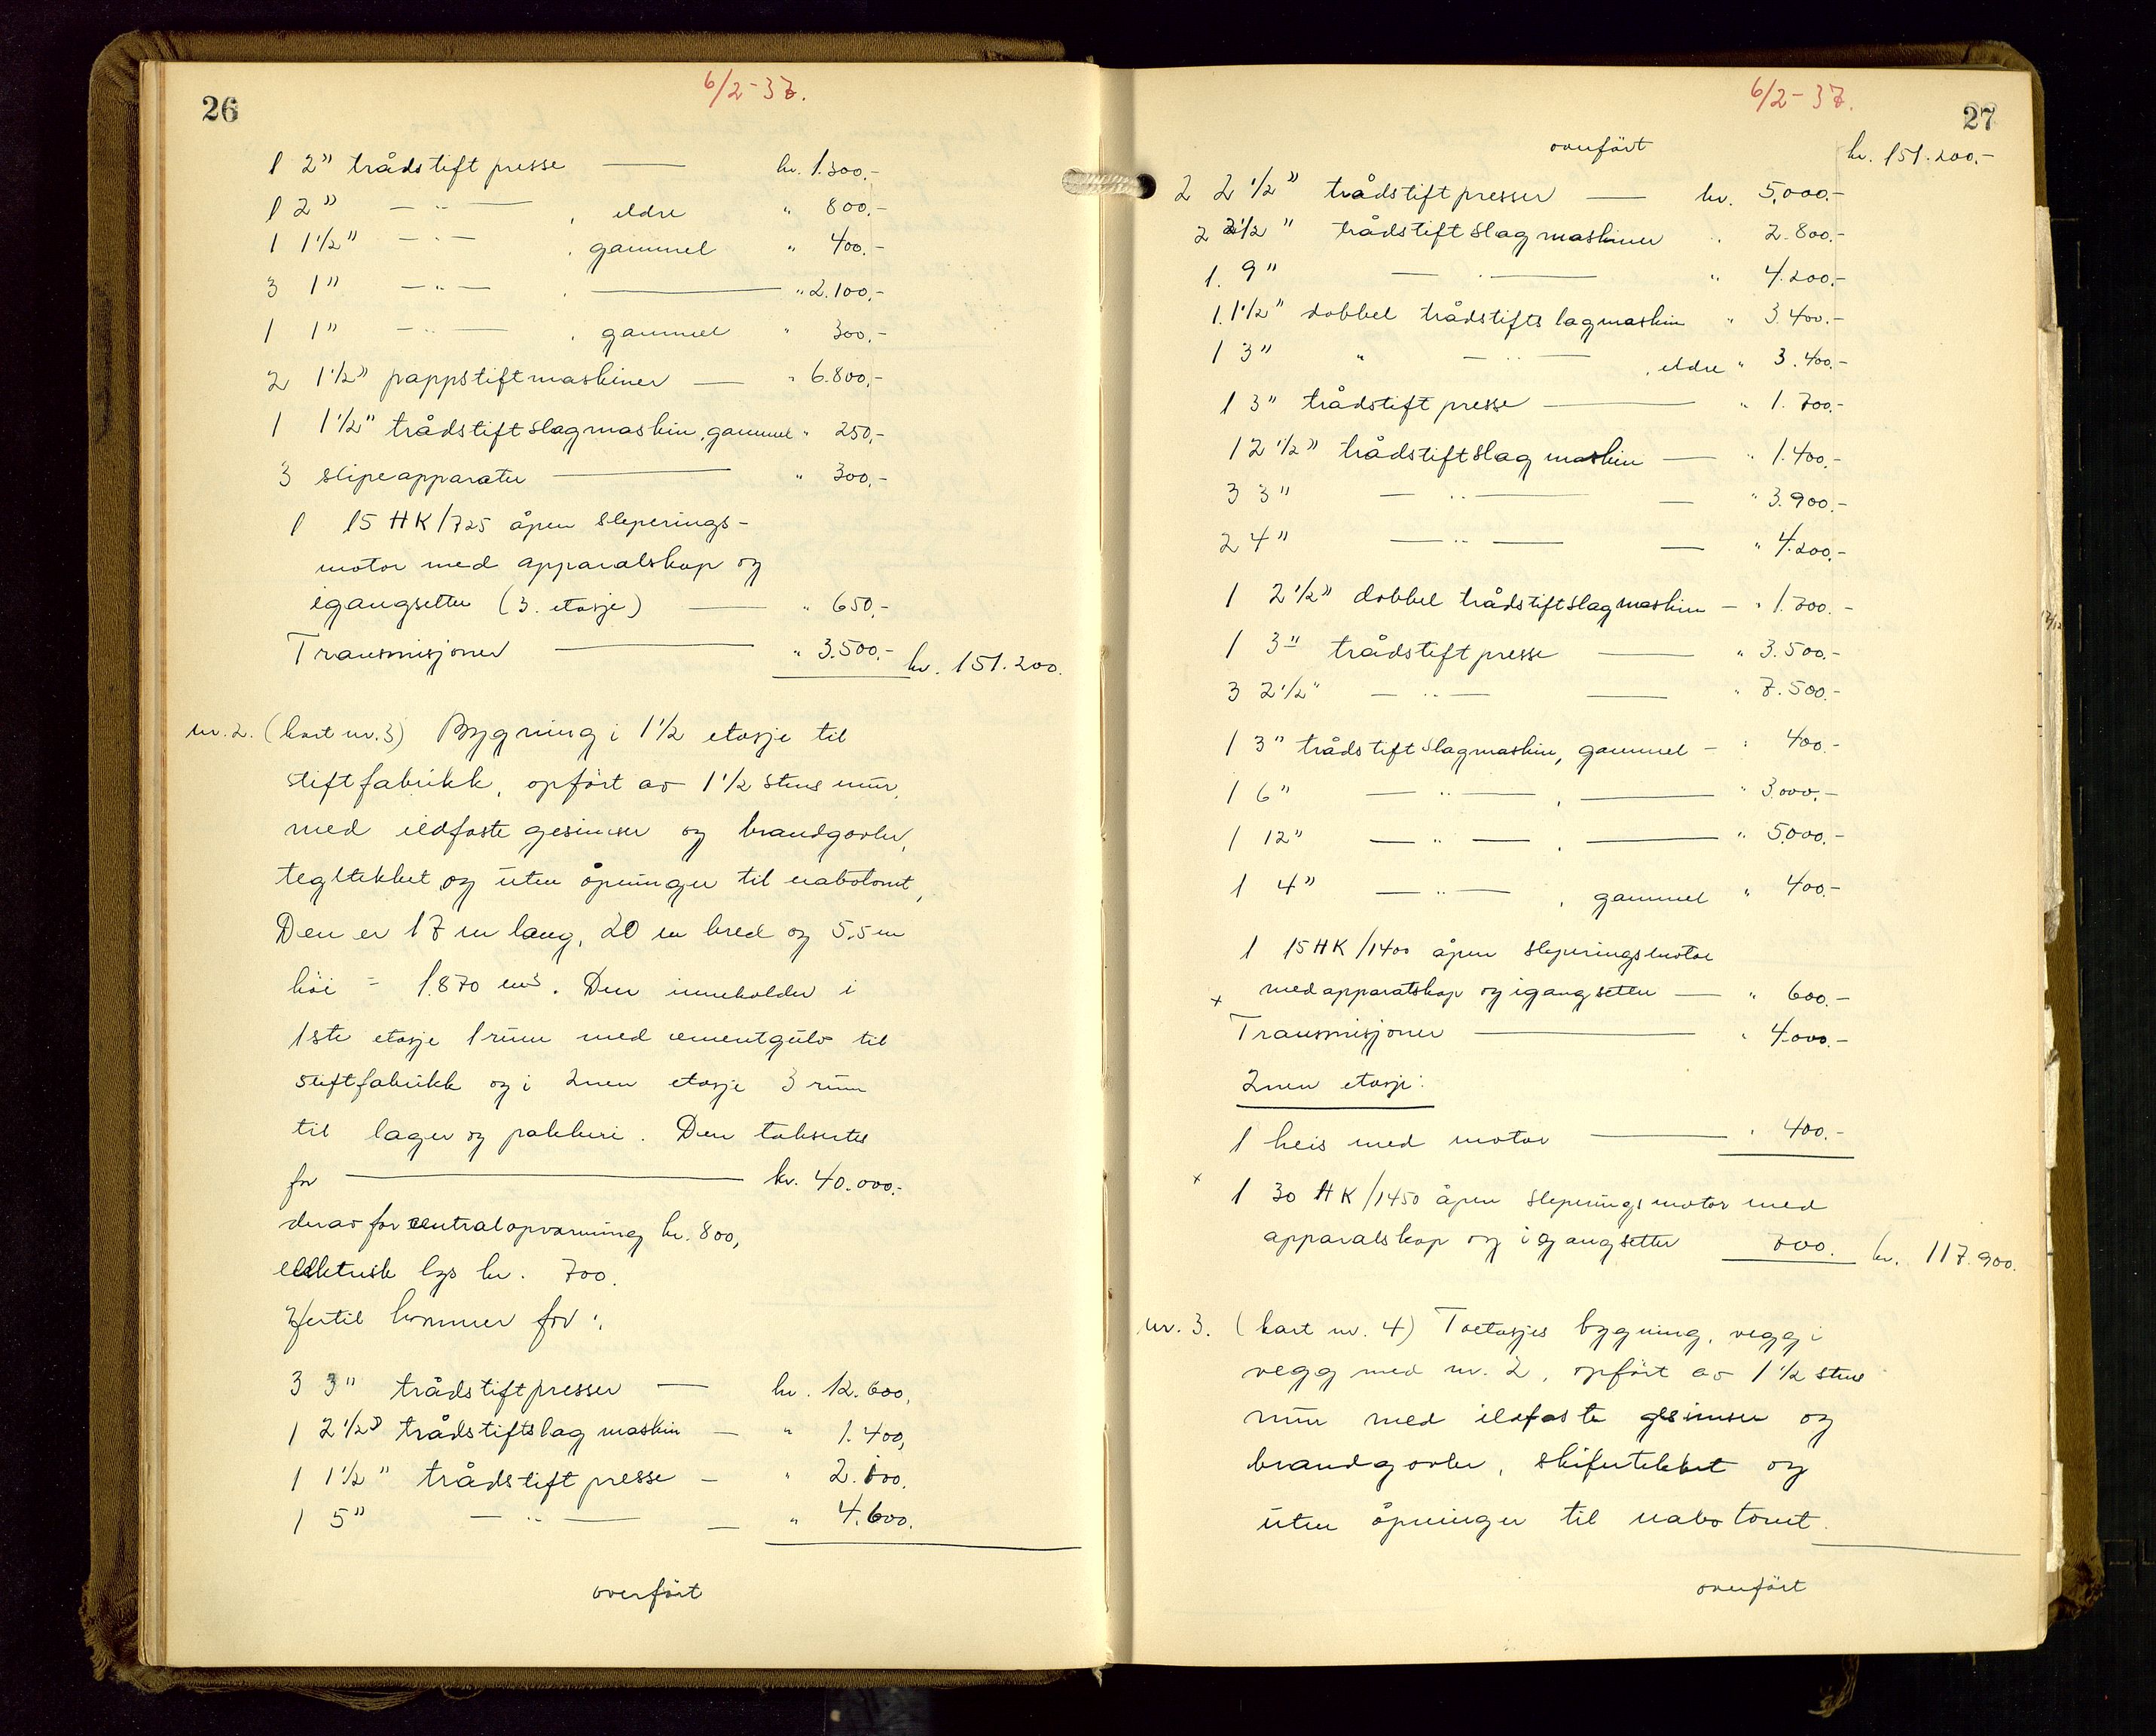 26
6/2-37.
1 2" trådstiftpresse — kr. 1.300,-
1 2" — " — , eldre " 800,-
1 1½" — " — , gammel " 400,-
3 1" — " — , — " 2.100,-
1 1" — " — , gammel " 300,-
2 1½" pappstiftmaskiner — " 6.800,-
1 1½" trådstiftslagmaskin, gammel " 250,-
3 slipeapparater — " 300,-
1 15 HK/725 åpen sleperings-
motor med apparatskap og
igangsetter (3. etasje) — " 650,-
Transmisjoner — " 3.500,- kr. 151.200.
nr. 2. (kart nr. 3) Bygning i 1½ etasje til
stiftfabrikk, opført av 1½ stens mur,
med ildfaste gesimser og brandgavler,
tegltekket og uten åpninger til nabotomt,
Den er 17 m lang, 20 m bred og 5,5 m
høi = 1.870 m³. Den inneholder i
1ste etasje 1 rum med cementgulv til
stiftfabrikk og i 2nen etasje 3 rum
til lager og pakkeri. Den takseres
for — kr. 40.000,-
derav for centralopvarming kr. 800,
elektrisk lys kr. 700.
Hertil kommer for:
3 3" trådstiftpresser — kr. 12.600,
1 2½" trådstiftslagmaskin — " 1.400,
1 1½" trådstiftpresse — "
1 5" — " — — " 4.600.
overført
27
6/2-37.
overført kr. 151.200,-
2 2½" trådstiftpresser — kr. 5.000,-
2 2½" trådstiftslagmaskiner " 2.800,-
1. 9" — " — " 4.200,-
1. 1½" dobbel trådstiftslagmaskin " 3.400.-
1 3" " — " — , eldre " 3.400,-
1 3" trådstiftpresse — " 1.700,-
1 2½" trådstiftslagmaskin — " 1.400,-
3 3" — " — — " 3.900,-
2 4" — " — — " 4.200,-
1 2½" dobbel trådstiftslagmaskin — " 1.700.-
1 3" trådstiftpresse — " 3.500,-
3 2½" — " — — " 7.500.-
1 3" trådstiftslagmaskin, gammel — " 400.-
1 6" — " — , — " 3.000,-
1 12" — " — , — " 5.000,-
1 4" — " — , gammel " 400.-
1 15 HK/1400 åpen sleperingsmotor
x med apparatskap og igangsetter — " 600.-
Transmisjoner — " 4.000.-
2nen etasje:
1 heis med motor — " 400.-
x 1 30 HK/1450 åpen sleperingsmotor med
apparatskap og igangsetter 700. kr. 117.900.
nr. 3. (kart nr. 4) Toetasjes bygning, vegg i
vegg med nr. 2, opført av 1½ stens
mur med ildfaste gesimser og
brandgavler, skifertekket og
uten åpninger til nabotomt.
overført